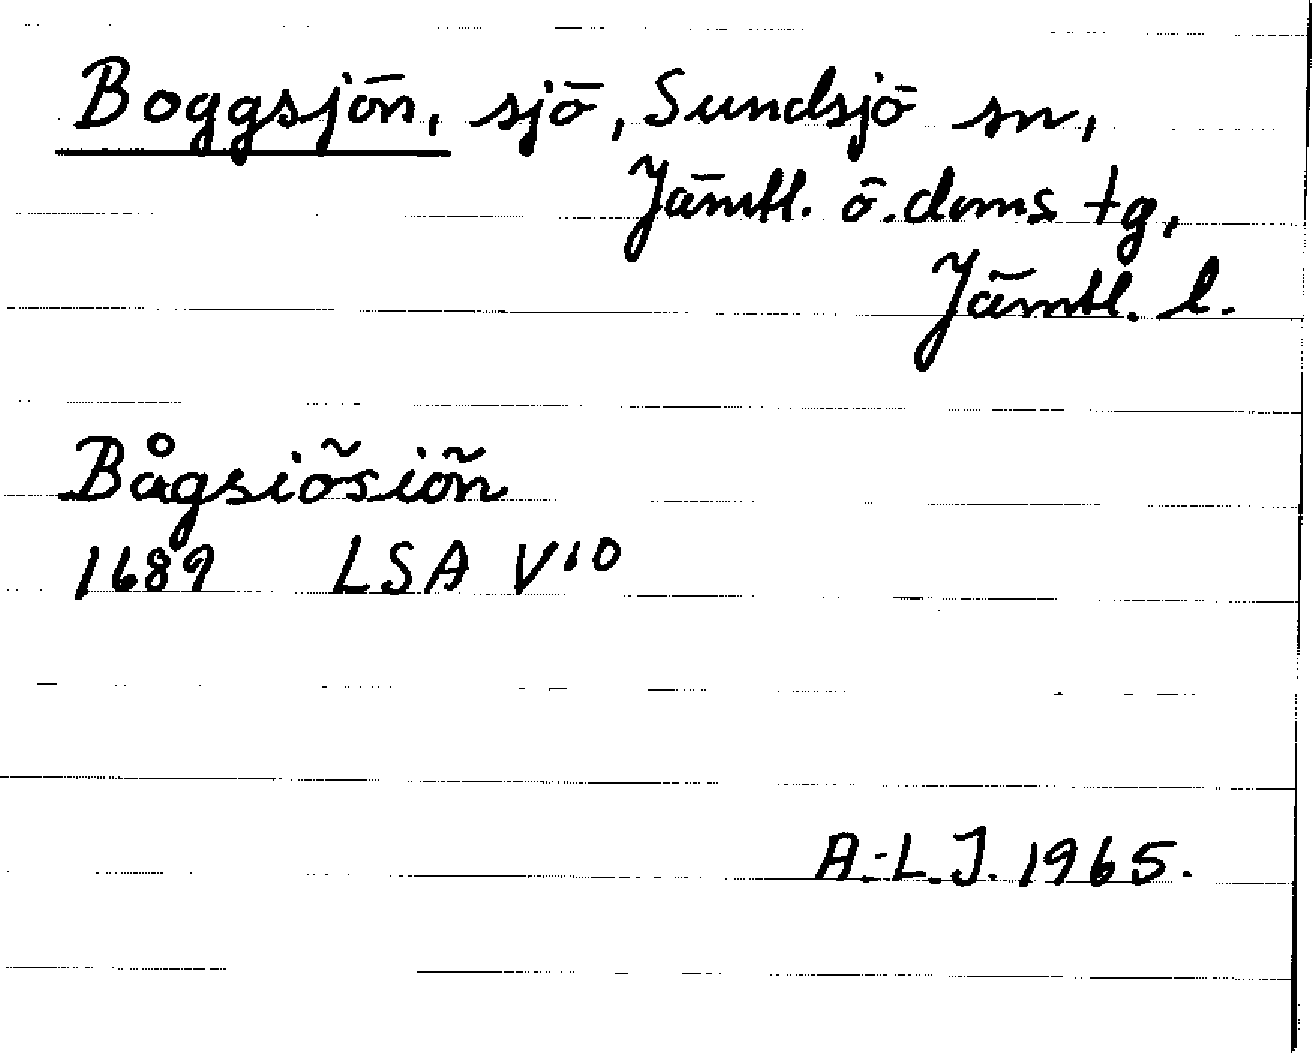 Boggsjön, sjö, Sundsjö sn,
Jämtl. ö. doms tg,
Jämtl. l.
Bågsiösiön
1689 LSA V10
A.-L.J. 1965.